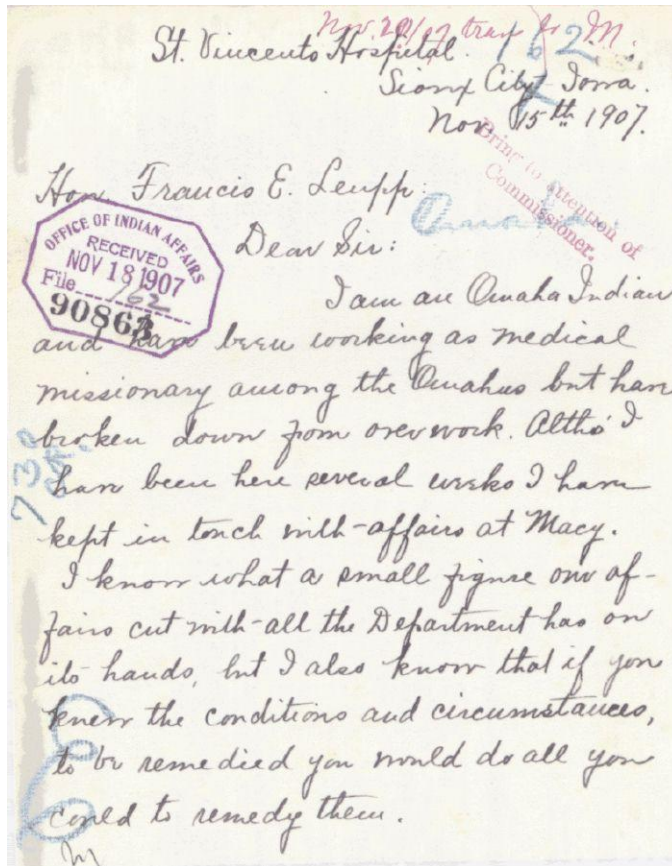 Nov. 20/07
St. Vincents Hospital.
Sioux City Iowa.
Nov. 15th 1907.
Bring to attention of
Commissioner.
Hon. Francis E. Leupp:
Omaha
Dear Sir:
OFFICE OF INDIAN AFFAIRS
RECEIVED
NOV 18 1907
File
90863
I am an Omaha Indian
and have been working as medical
missionary among the Omahas but have
broken down from overwork. Altho' I
have been here several weeks I have
kept in touch with affairs at Macy.
I know what a small figure our af-
fairs cut with all the Department has on
its hands, but I also know that if you
knew the conditions and circumstances,
to be remedied you would do all you
could to remedy them.